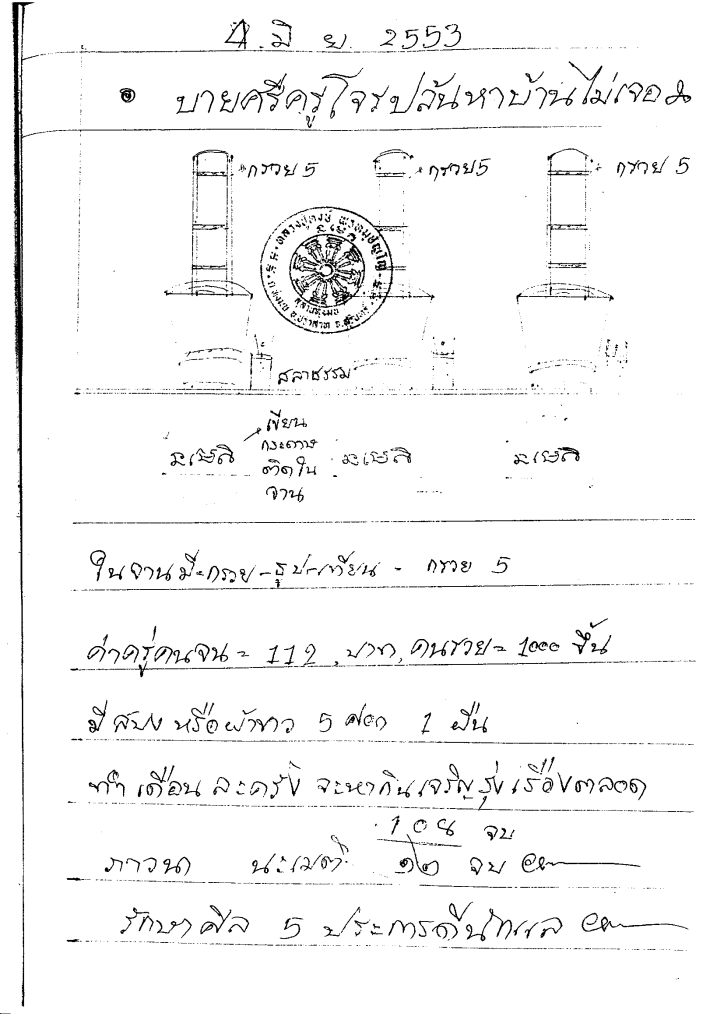 4 มิ ย. 2553
บายศรีครูโจรปล้นหาบ้านไม่เจอ
กรวย 5
กรวย 5
กรวย 5
สลาธรรม
เขียน
กระดาษ
ติดใน
จาน
ในจานมี-กรวย-ธูป-เทียน - กรวย 5
ค่าครูคนจน = 112 บาท, คนรวย = 1000 ขึ้น
มี สบง หรือผ้าขาว 5 ศอก 1 ผืน
ทำ เดือน ละครั้ง จะหากินเจริญรุ่งเรืองตลอด
108 จบ
ภาวนา นะเมติ ๑๒ จบ
รักษาศีล 5 ประการดีนักแล